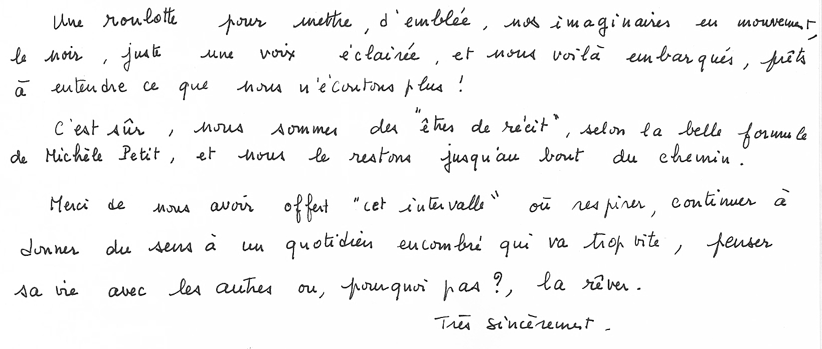 Une roulotte pour mettre, d'emblée, nos imaginaires en mouvement,
le noir, juste une voix éclairée, et nous voilà embarqués, prêts
à entendre ce que nous n'écoutons plus !
C'est sûr, nous sommes des "êtres de récit", selon la belle formule
de Michèle Petit, et nous le restons jusqu'au bout du chemin.
Merci de nous avoir offert "cet intervalle" où respirer, continuer à
donner du sens à un quotidien encombré qui va trop vite, penser
sa vie avec les autres ou, pourquoi pas ?, la rêver.
Très sincèrement.